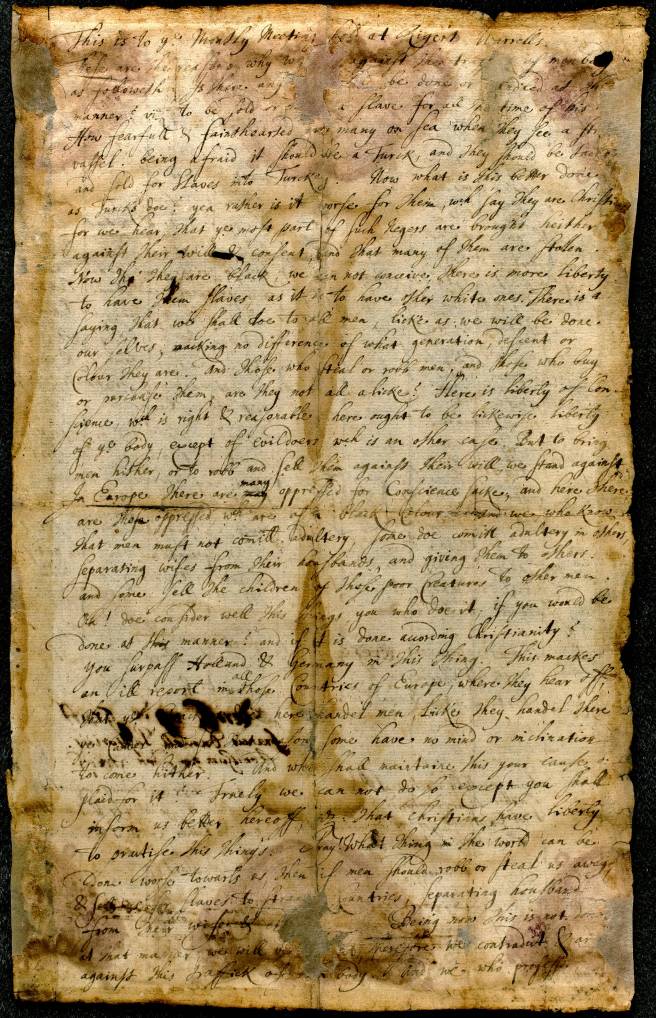 This is to ye Monthly Meeting held at Rigert Worrells.
These are the reasons why we are against the traffick of men body
as followeth. Is there any be done or handled at this
manner? viz. to be sold or made a slave for all the time of his
How fearfull & fainthearted are many on sea when they see a strange
vassel. being afraid it should be a Turck, and they should be tacken
and sold for Slaves into Turckey. Now what is this better done
as Turcks doe? yea rather is it worse for them, wch say they are Christians
for we hear, that ye most part of such Negers are brought heither
against their will & consent, and that many of them are stollen.
Now tho' they are black, we can not conceive there is more liberty
to have them slaves, as it is to have other white ones. There is a
saying that we shall doe to all men, licke as we will be done
our selves, macking no difference of what generation, descent or
Colour they are. And those who steal or robb men, and those who buy
or purchase them, are they not all alicke? Here is liberty off Con-
science, wch is right & reasonable, here ought to be lickewise liberty
of ye body, except of evildoers wch is an other case. But to bring
men hither, or to robb and sell them against their will, we stand against.
In Europe there are many oppressed for Conscience sacke, and here there
are those oppressed wh are of a black Colour and we who know
that men must not comitt adultery, some doe comitt adultery in others,
separating wifes from their housbands, and giving them to others.
and some sell the children of those poor Creatures to other men.
Oh! doe consider well this things you who doe it, if you would be
done at this manner? and if it is done according Christianity?
You surpass Holland & Germany in this thing. This mackes
an ill report in all those Countries of Europe, where they hear off,
ye here handel men, Licke they handel there
some have no mind or inclination
to come hither. And who shall maintaine this your cause
plaid for it? Truely we can not do so except you shall
inform us better hereoff, viz. that christians have liberty
to practise this things. Pray! What thing in the world can be
done worse towarts us then if men should robb or steal us away,
& sell us for slaves to strange Countries, separating housband
from their wife & Being now this is not done
at that manner, we will Therefore we contradict & are
against this traffick of men body. And we who profess